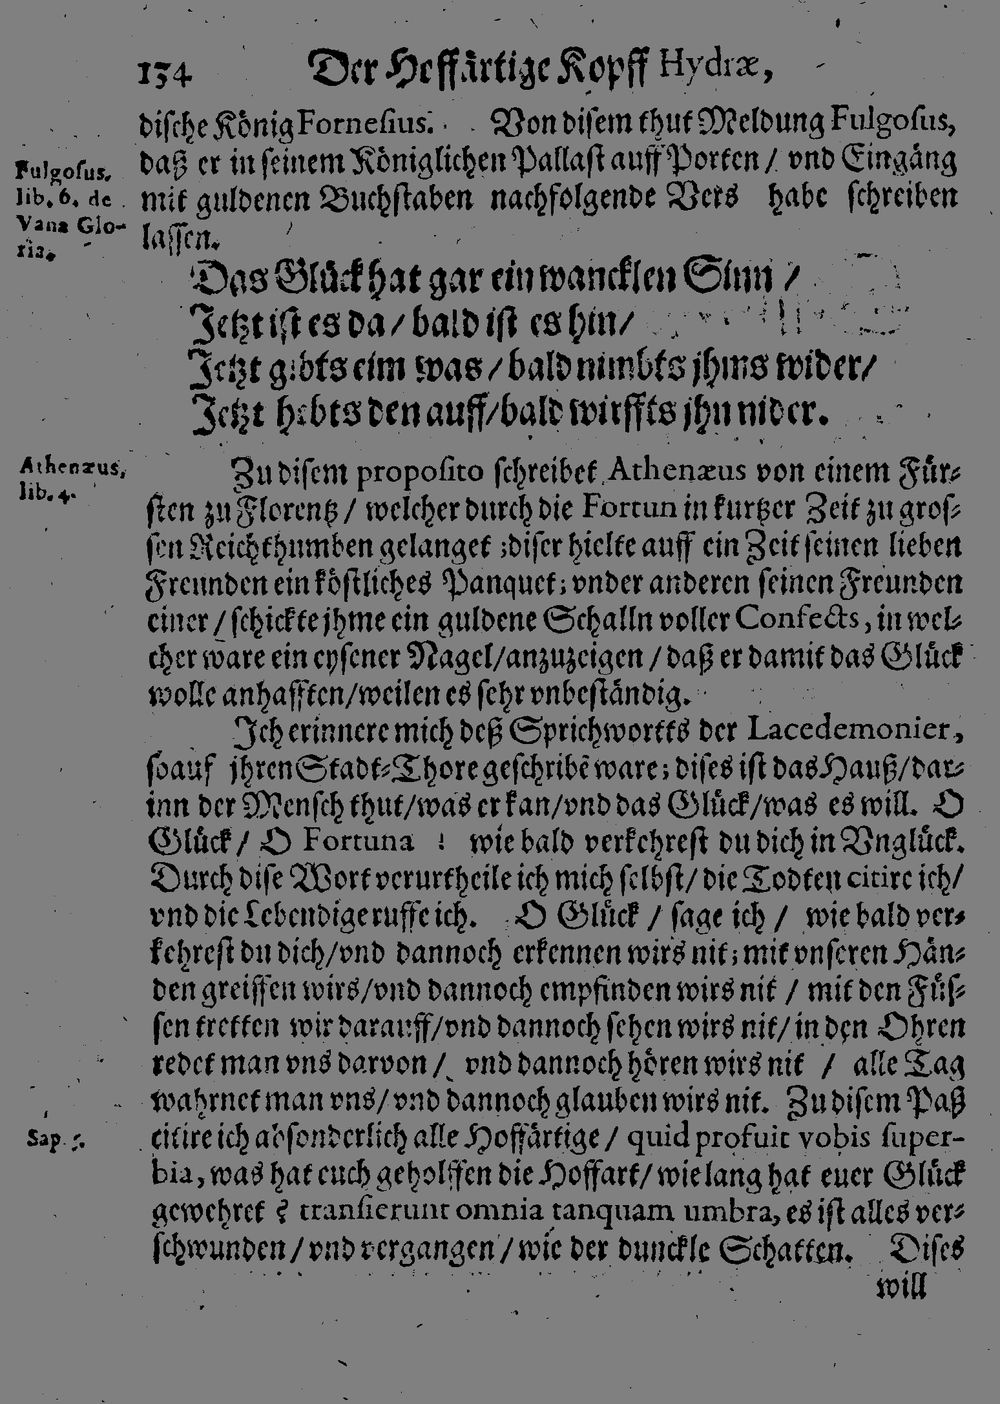 134 Der Hoffärtige Kopff Hydræ,
dische König Fornesius. Von disem thut Meldung Fulgosus,
Fulgosus,
lib. 6. de
Vana Glo-
ria.
daß er in seinem Königlichen Pallast auff Porten / vnd Eingäng
mit guldenen Buchstaben nachfolgende Vers habe schreiben
lassen.
Das Glück hat gar ein wancklen Sinn /
Jetzt ist es da / bald ist es hin /
Jetzt gibts eim was / bald nimbts jhms wider /
Jetzt hebts den auff / bald wirffts jhn nider.
Athenæus,
lib. 4.
Zu disem proposito schreibet Athenæus von einem Für-
sten zu Florentz / welcher durch die Fortun in kurtzer Zeit zu gros-
sen Reichthumben gelanget ; diser hielte auff ein Zeit seinen lieben
Freunden ein köstliches Panquet; vnder anderen seinen Freunden
einer / schickte jhme ein guldene Schalln voller Confects, in wel-
cher ware ein eysener Nagel / anzuzeigen / daß er damit das Glück
wolle anhafften / weilen es sehr vnbeständig.
Ich erinnere mich deß Sprichwortts der Lacedemonier,
so auf jhren Stadt-Thore geschribē ware; dises ist das Hauß / dar-
inn der Mensch thut / was er kan / vnd das Glück / was es will. O
Glück / O Fortuna ! wie bald verkehrest du dich in Vnglück.
Durch dise Wort verurtheile ich mich selbst / die Todten citire ich /
vnd die Lebendige ruffe ich. O Glück / sage ich / wie bald ver-
kehrest du dich / vnd dannoch erkennen wirs nit; mit vnseren Hän-
den greiffen wirs / vnd dannoch empfinden wirs nit / mit den Füs-
sen tretten wir darauff / vnd dannoch sehen wirs nit / in den Ohren
redet man vns darvon / vnd dannoch hören wirs nit / alle Tag
wahrnet man vns / vnd dannoch glauben wirs nit. Zu disem Paß
Sap. 5.
citire ich absonderlich alle Hoffärtige / quid profuit vobis super-
bia, was hat euch geholffen die Hoffart / wie lang hat euer Glück
gewehret ? transierunt omnia tanquam umbra, es ist alles ver-
schwunden / vnd vergangen / wie der dunckle Schatten. Dises
will